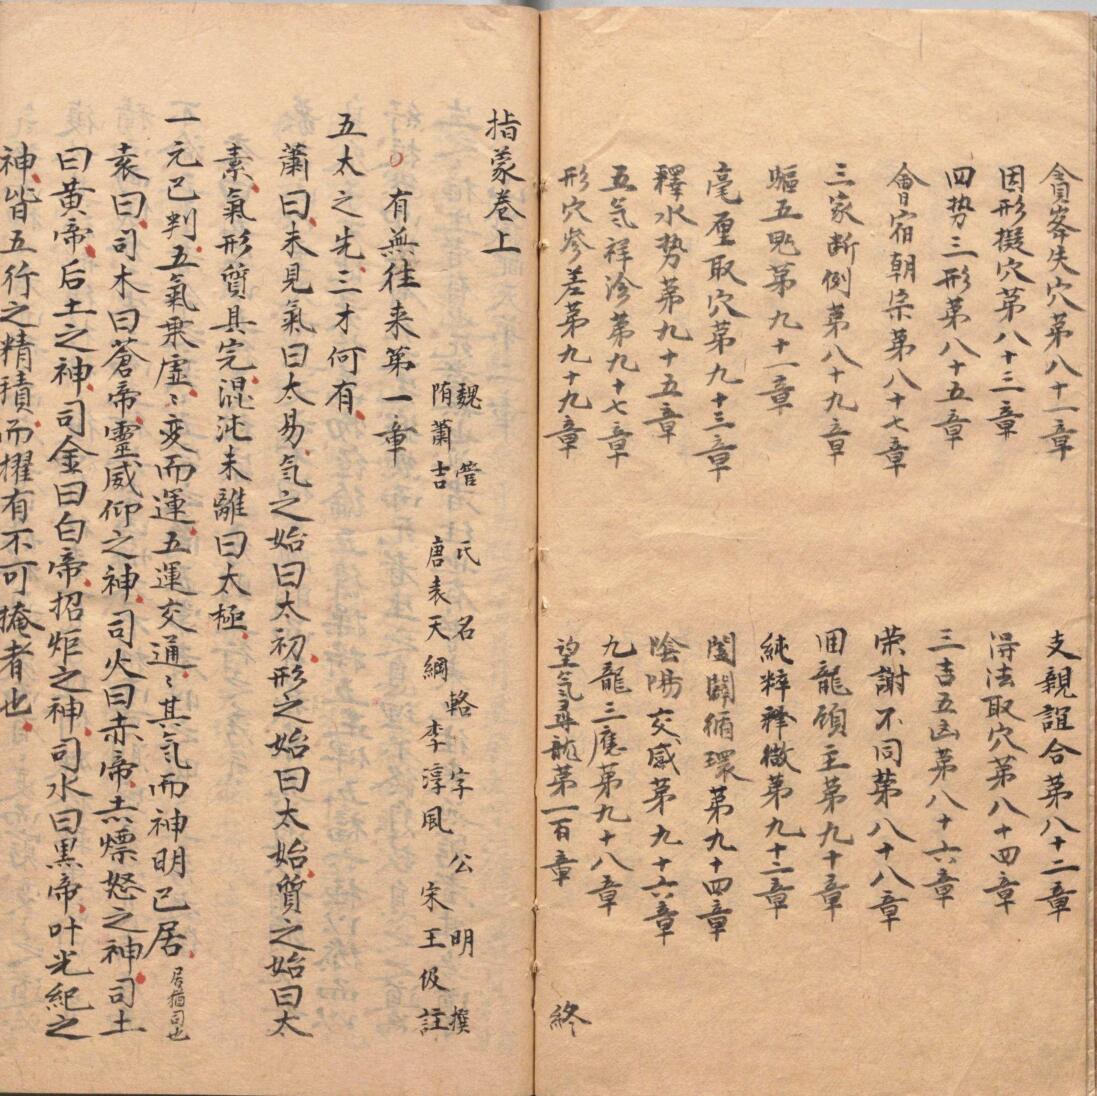 貪峯失穴第八十一章
支親誼合第八十二章
因形擬穴第八十三章
得法取穴第八十四章
四势三形第八十五章
三吉五凶第八十六章
會宿朝宗第八十七章
荣謝不同苐八十八章
三家断例第八十九章
囬龍顧主第九十章
驅五鬼第九十一章
純粹釋微第九十二章
毫厘取穴第九十三章
闔闢循環第九十四章
釋水势第九十五章
陰陽交感第九十六章
五气祥沴第九十七章
九龍三應第九十八章
形穴參差第九十九章
望气尋龍第一百章
終
指蒙卷上
魏 管 氏 名 輅 字 公 明 撰
隋蕭吉 唐袁天綱 李淳風 宋王伋註
有無往来第一章
五太之先三才何有
蕭曰未見氣曰太易气之始曰太初形之始曰太始質之始曰太
素氣形質具完混沌未離曰太極
一元已判五氣乘虛〻变而運五運交通〻其気而神明已居居猶司也
袁曰司木曰蒼帝靈威仰之神司火曰赤帝赤熛怒之神司土
曰黄帝后土之神司金曰白帝招炬之神司水曰黒帝叶光紀之
神皆五行之精積而擢有不可掩者也